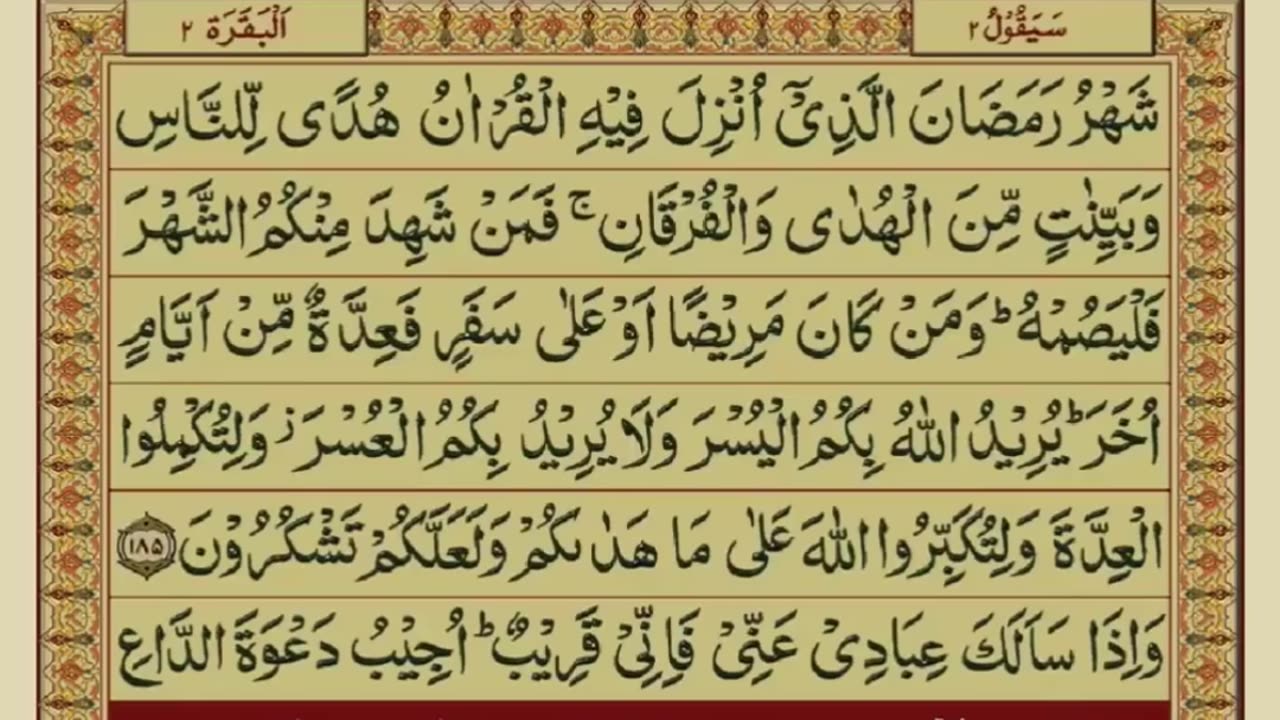 سَيَقُوْلُ ٢
اَلْبَقَرَة ٢
شَهْرُ رَمَضَانَ الَّذِىْٓ اُنْزِلَ فِيْهِ الْقُرْاٰنُ هُدًى لِّلنَّاسِ
وَبَيِّنٰتٍ مِّنَ الْهُدٰى وَالْفُرْقَانِ ۚ فَمَنْ شَهِدَ مِنْكُمُ الشَّهْرَ
فَلْيَصُمْهُ ؕ وَمَنْ كَانَ مَرِيْضًا اَوْ عَلٰى سَفَرٍ فَعِدَّةٌ مِّنْ اَيَّامٍ
اُخَرَ ؕ يُرِيْدُ اللّٰهُ بِكُمُ الْيُسْرَ وَلَا يُرِيْدُ بِكُمُ الْعُسْرَ ز وَلِتُكْمِلُوا
الْعِدَّةَ وَلِتُكَبِّرُوا اللّٰهَ عَلٰى مَا هَدٰٮكُمْ وَلَعَلَّكُمْ تَشْكُرُوْنَ ١٨٥
وَاِذَا سَاَلَكَ عِبَادِىْ عَنِّىْ فَاِنِّىْ قَرِيْبٌ ؕ اُجِيْبُ دَعْوَةَ الدَّاعِ